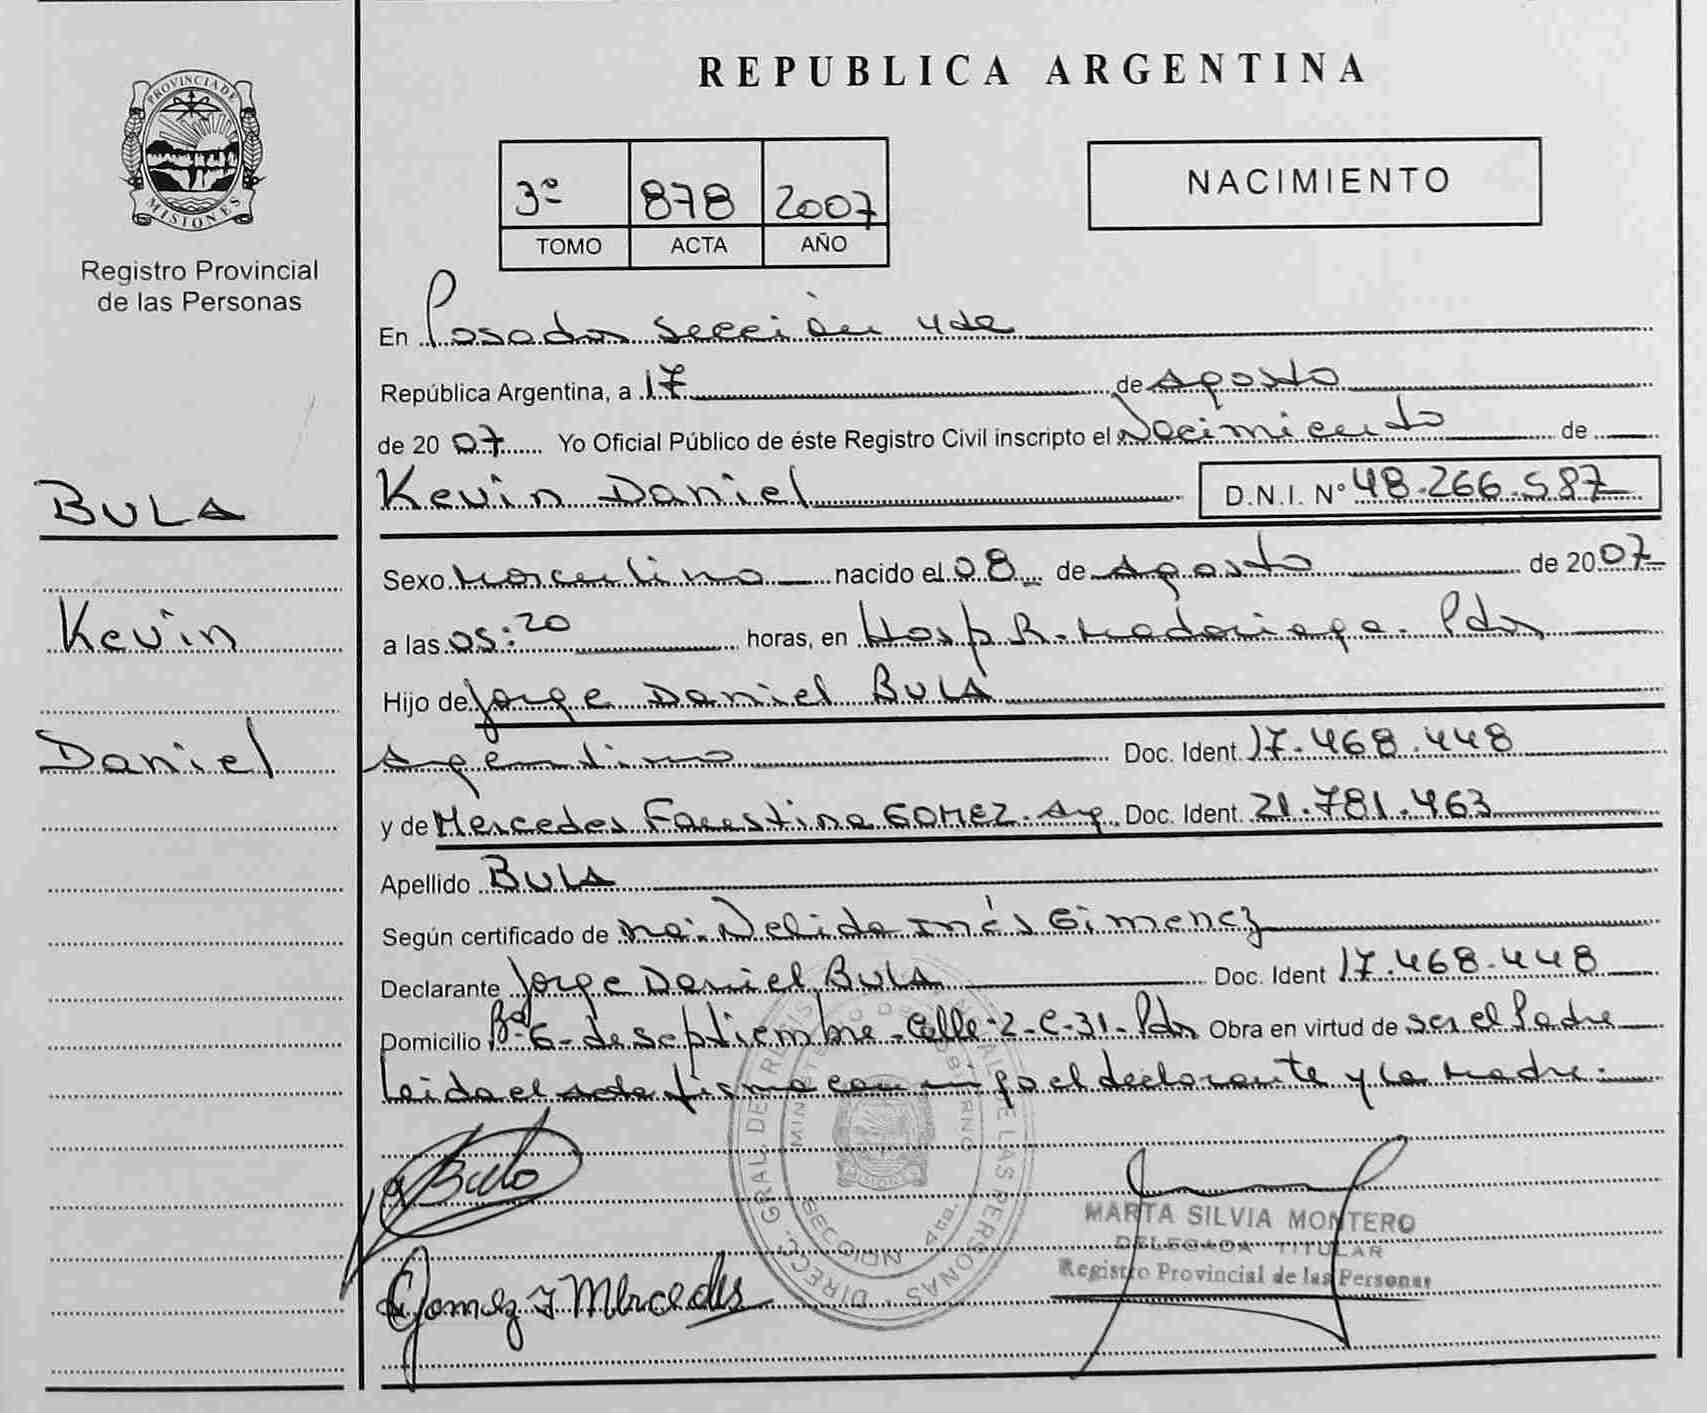 REPUBLICA ARGENTINA
PROVINCIA DE
MISIONES
Registro Provincial
de las Personas
3º 878 2007
TOMO ACTA AÑO
NACIMIENTO
En Posadas Sección 4ta
República Argentina, a 17 de Agosto
de 2007 Yo Oficial Público de éste Registro Civil inscripto el Nacimiento de
Kevin Daniel D.N.I. Nº 48.266.587
BULA
Kevin
Daniel
Sexo Masculino nacido el 08 de Agosto de 2007
a las 05:20 horas, en Hosp R. Madariaga. Pdas
Hijo de Jorge Daniel BULA
Argentino Doc. Ident. 17.468.448
y de Mercedes Faustina GOMEZ. Arg. Doc. Ident. 21.781.463
Apellido BULA
Según certificado de Nélida Inés Gimenez
Declarante Jorge Daniel BULA Doc. Ident 17.468.448
Domicilio Bº 6 de septiembre - Calle 2 - C-31 - Pdas Obra en virtud de ser el Padre
Leida el acta firma con migo el declarante y la Madre.
Bula
Gomez F Mercedes
DIRECC. GRAL. DE REGIS PROVINCIAL DE LAS PERSONAS
MINISTERIO DE GOBIERNO
SECCION 4ta.
MARTA SILVIA MONTERO
DELEGADA TITULAR
Registro Provincial de las Personas